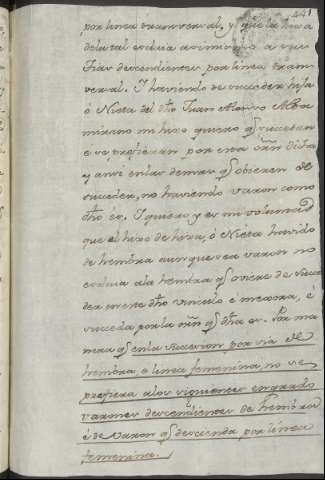 441
por linea transversal, y que la hixa
dela tal excluia asimismo a sus
Tias descendientes por linea trans-
versal. Y haviendo de suceder hija
ó Nieta del dho Juan Alonso
mi hixo quiero q̃ sucedan
e se prefieran por esta orñ dicha
y ansi enlas demas q̃ obieren de
suceder, no haviendo varon como
dho és. Y quiero y es mi voluntad
que el hixo de hixa, ó Nieta havido
de hembra aunque sea varon no
excluia ala hembra q̃ oviere de suce
der eneste dho vinculo e mexora, é
suceda por la orñ q̃ dha es. Por ma
nera q̃ enla sucesion por via de
hembra, o linea femenina, no se
prefiera alos siguientes engrado
varones descendientes de hembra
é de varon q̃ descienda por linea
femenina.